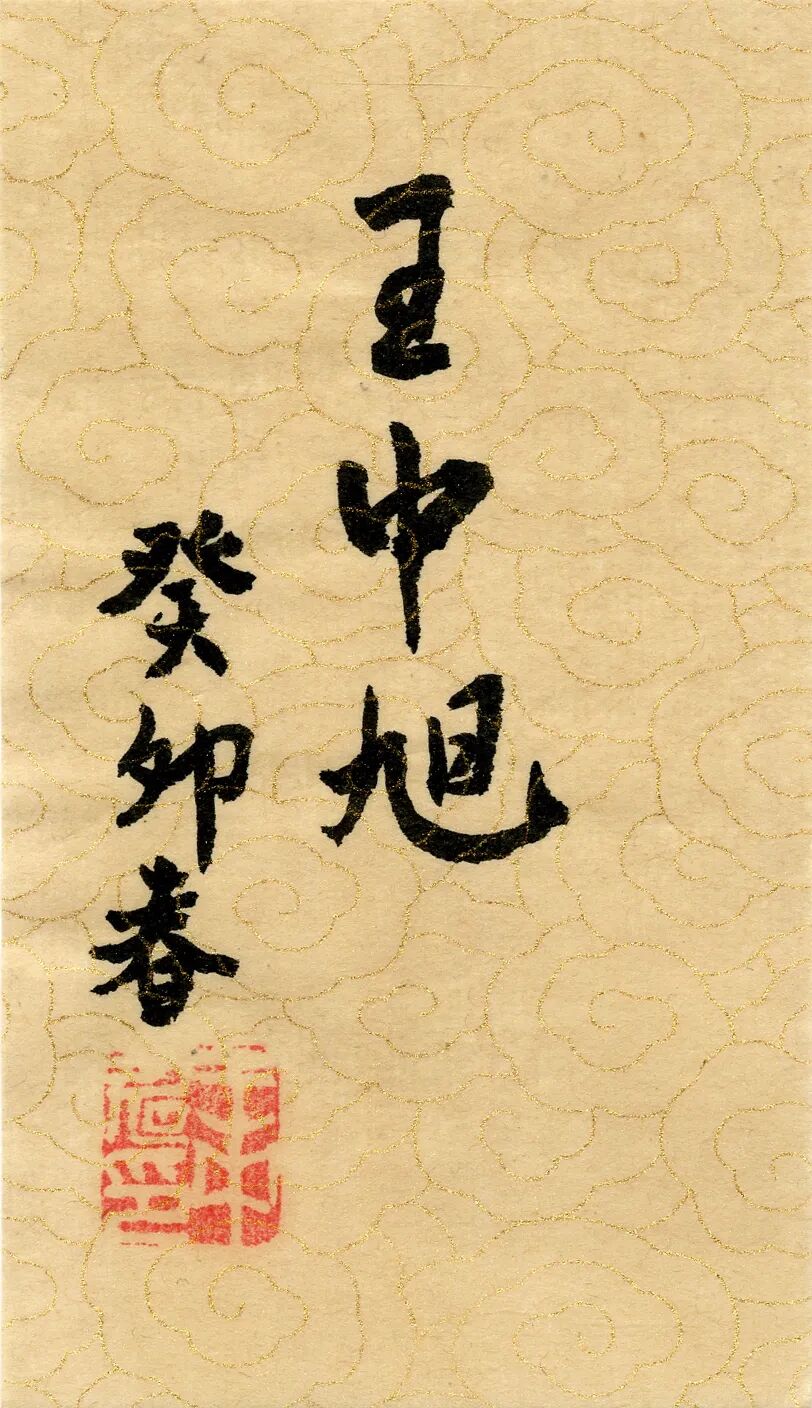 王中旭
癸卯春